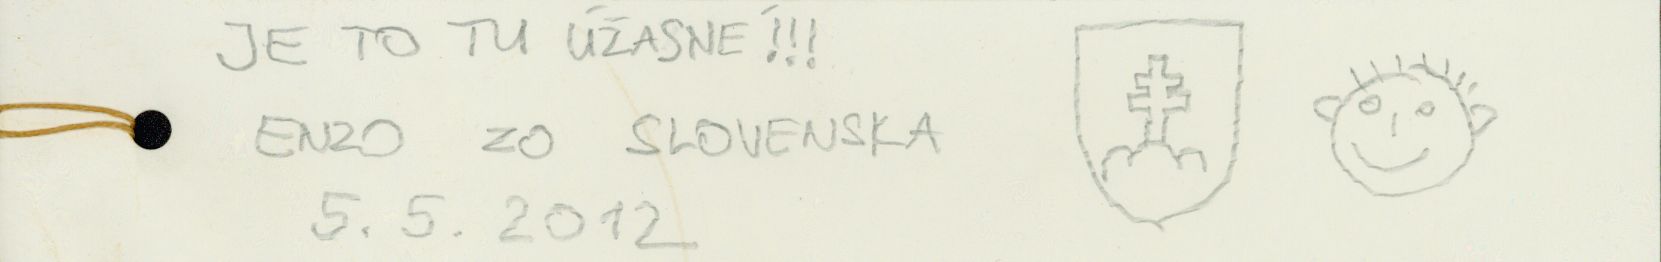 JE TO TU ÚŽASNÉ!!!
ENZO ZO SLOVENSKA
5.5.2012